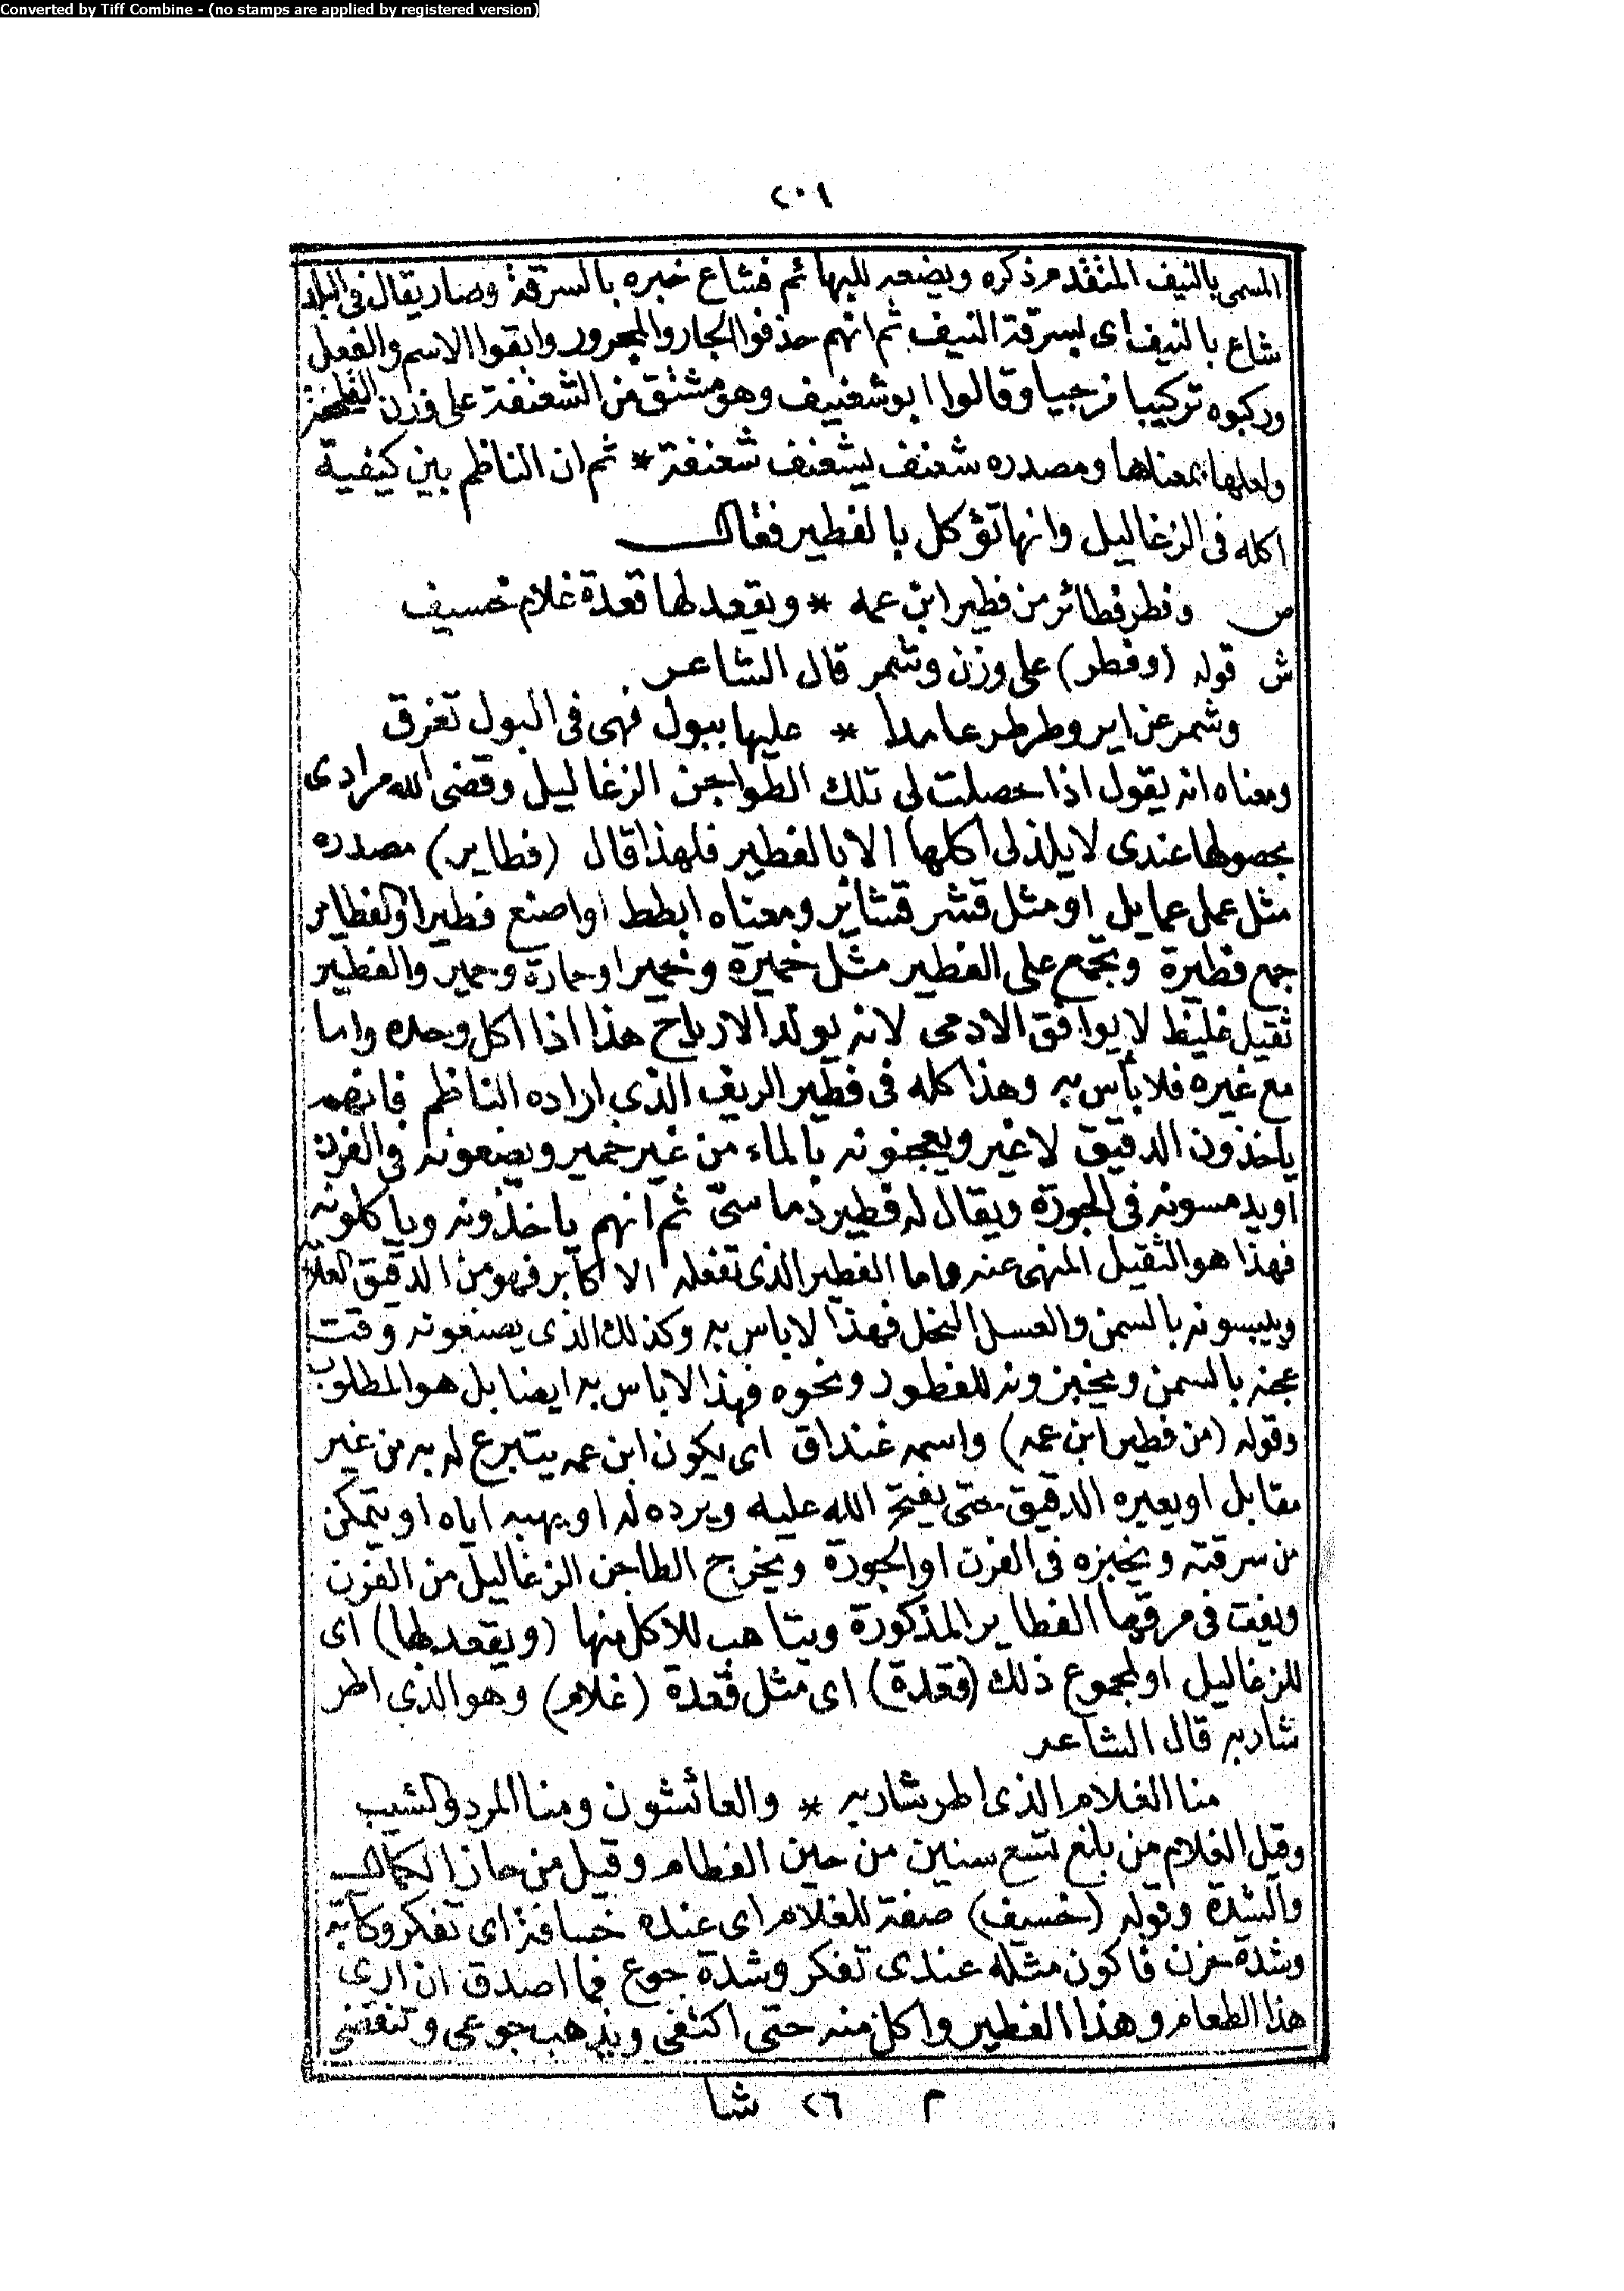 Converted by Tiff Combine - (no stamps are applied by registered version)
٢٠١
المسمى بالنيف المتقدم ذكره ويضعه للبهائم فشاع خبره بالسرقة وصار يقال فى البلد
شاع بالنيف اى بسرقة النيف ثم انهم حذفوا الجار والمجرور وابقوا الاسم والفعل
وركبوه تركيبا مزجيا وقالوا ابو شغنيف وهو مشتق من الشغنفة على وزن
ولعلها بمعناها ومصدره شغنف يشغنف شغنفة * ثم ان الناظم بين كيفية
اكله فى الزغاليل وانها تؤكل بالفطير فقال
ص وفطر فطائر من فطير ابن عمه * ويقعد لها قعدة غلام خسيف
ش قوله (وفطر) على وزن وشمر قال الشاعر
وشمر عن اير وطرطر عامدا * عليها ببول فهى فى البول تغرق
ومعناه انه يقول اذا حصلت لى تلك الطواجن الزغاليل وقضى الله مرادى
بحصولها عندى لا يلذ لى اكلها الا بالفطير فلهذا قال (فطاير) مصدره
مثل عمل عمايل او مثل قشر قشائر ومعناه ابطط او اصنع فطيرا والفطاير
جمع فطيرة وتجمع على الفطير مثل خميرة وخمير او حمارة وحمير والفطير
ثقيل غليظ لا يوافق الادمى لانه يولد الارياح هذا اذا اكل وحده واما
مع غيره فلا بأس به وهذا كله فى فطير الريف الذى اراده الناظم فانهم
ياخذون الدقيق لا غير ويعجنونه بالماء من غير خمير ويضعونه فى الفرن
او يدمسونه فى الجورة ويقال له فطير دماسى ثم انهم ياخذونه وياكلونه
فهذا هو الثقيل المنهى عنه واما الفطير الذى تفعله الاكابر فهو من الدقيق العلامة
ويبسونه بالسمن والعسل النحل فهذا لا باس به وكذلك الذى يصنعونه وقت
عجنه بالسمن ويخبزونه للفطور ونحوه فهذا لا باس به ايضا بل هو المطلوب
وقوله (من فطير ابن عمه) واسمه غنداق اى يكون ابن عمه يتبرع له به من غير
مقابل او يعيره الدقيق حتى يفتح الله عليه ويرده له او يهبه اياه او يتمكن
من سرقته ويخبزه فى الفرن او الجورة ويخرج الطاجن الزغاليل من الفرن
ويفت فى مرقها الفطاير المذكورة ويتاهب للاكل منها (ويقعد لها) اى
للزغاليل او لمجموع ذلك (قعدة) اى مثل قعدة (غلام) وهو الذى اطر
شاربه قال الشاعر
منا الغلام الذى اطر شاربه * والعائشون ومنا المرد والشيب
وقيل الغلام من بلغ تسع سنين من حين الفطام وقيل من حاز الكمال
والشدة وقوله (خسيف) صفة للغلام اى عنده خسافة اى تفكر وكآبة
وشدة حزن فاكون مثله عندى تفكر وشدة جوع فما اصدق ان ارى
هذا الطعام وهذا الفطير واكل منه حتى اكتفى ويذهب جوعى وتنقضى
م ٢٦ شا